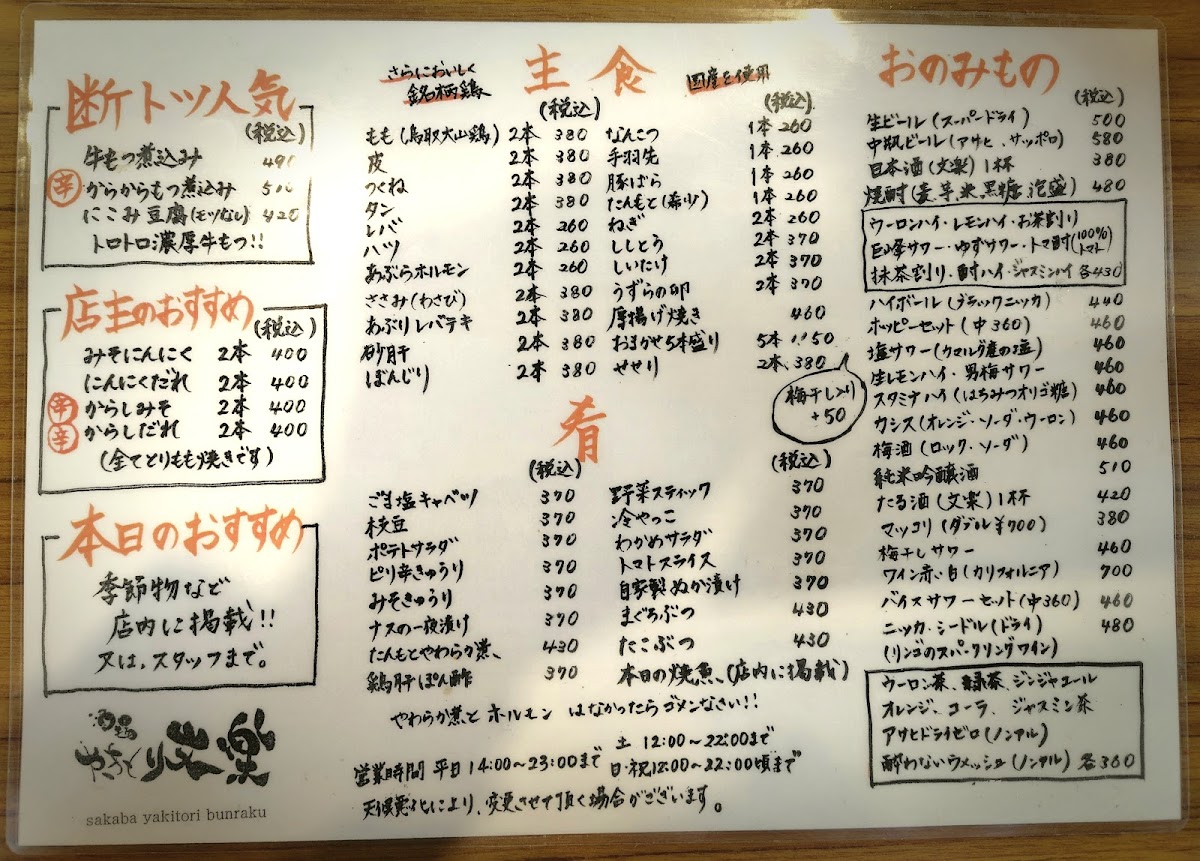 断トツ人気
(税込)
牛もつ煮込み 490
辛 からからもつ煮込み 500
にこみ豆腐(モツなし) 420
トロトロ濃厚牛もつ!!
店主のおすすめ
(税込)
みそにんにく 2本 400
にんにくだれ 2本 400
辛 からしみそ 2本 400
辛 からしだれ 2本 400
(全てとりもも焼きです)
本日のおすすめ
季節物など
店内に掲載!!
又は、スタッフまで。
酒場
やきとり文楽
sakaba yakitori bunraku
さらにおいしく
銘柄鶏
主食
国産を使用
(税込)
もも(鳥取大山鶏) 2本 380
皮 2本 380
つくね 2本 380
タン 2本 380
レバ 2本 260
ハツ 2本 260
あぶらホルモン 2本 260
ささみ(わさび) 2本 380
あぶりレバテキ 2本 380
砂肝 2本 380
ぼんじり 2本 380
(税込)
なんこつ 1本 260
手羽先 1本 260
豚ばら 1本 260
たんもと(希少) 1本 260
ねぎ 2本 260
ししとう 2本 370
しいたけ 2本 370
うずらの卵 2本 370
厚揚げ焼き 460
おまかせ5本盛り 5本 1,150
せせり 2本 380
梅干し入り
+50
肴
(税込)
ごま塩キャベツ 370
枝豆 370
ポテトサラダ 370
ピリ辛きゅうり 370
みそきゅうり 370
ナスの一夜漬け 370
たんもとやわらか煮、 430
鶏肝ぽん酢 370
(税込)
野菜スティック 370
冷やっこ 370
わかめサラダ 370
トマトスライス 370
自家製ぬか漬け 370
まぐろぶつ 430
たこぶつ 430
本日の焼魚、(店内に掲載)
やわらか煮と ホルモン はなかったらゴメンなさい!!
営業時間 平日 14:00〜23:00まで
土 12:00〜22:00まで
日・祝12:00〜22:00頃まで
天候悪化により、変更させて頂く場合がございます。
おのみもの
(税込)
生ビール(スーパードライ) 500
中瓶ビール(アサヒ、サッポロ) 580
日本酒(文楽)1杯 380
焼酎(麦 芋 米 黒糖 泡盛) 480
ウーロンハイ・レモンハイ・お茶割り
巨峰サワー・ゆずサワー・トマ酎(100%トマト)
抹茶割り・酎ハイ・ジャスミンハイ 各430
ハイボール(ブラックニッカ) 440
ホッピーセット(中360) 460
塩サワー(ゲランド産の塩) 460
生レモンハイ・男梅サワー 460
スタミナハイ(はちみつオリゴ糖) 460
カシス(オレンジ・ソーダ・ウーロン) 460
梅酒(ロック・ソーダ) 460
純米吟醸酒 510
たる酒(文楽)1杯 420
マッコリ(ダブル¥700) 380
梅干しサワー 460
ワイン赤・白(カリフォルニア) 700
バイスサワーセット(中360) 460
ニッカ・シードル(ドライ) 480
(リンゴのスパークリングワイン)
ウーロン茶、緑茶、ジンジャエール
オレンジ、コーラ、ジャスミン茶
アサヒドライゼロ(ノンアル)
酔わないウメッシュ(ノンアル) 各360